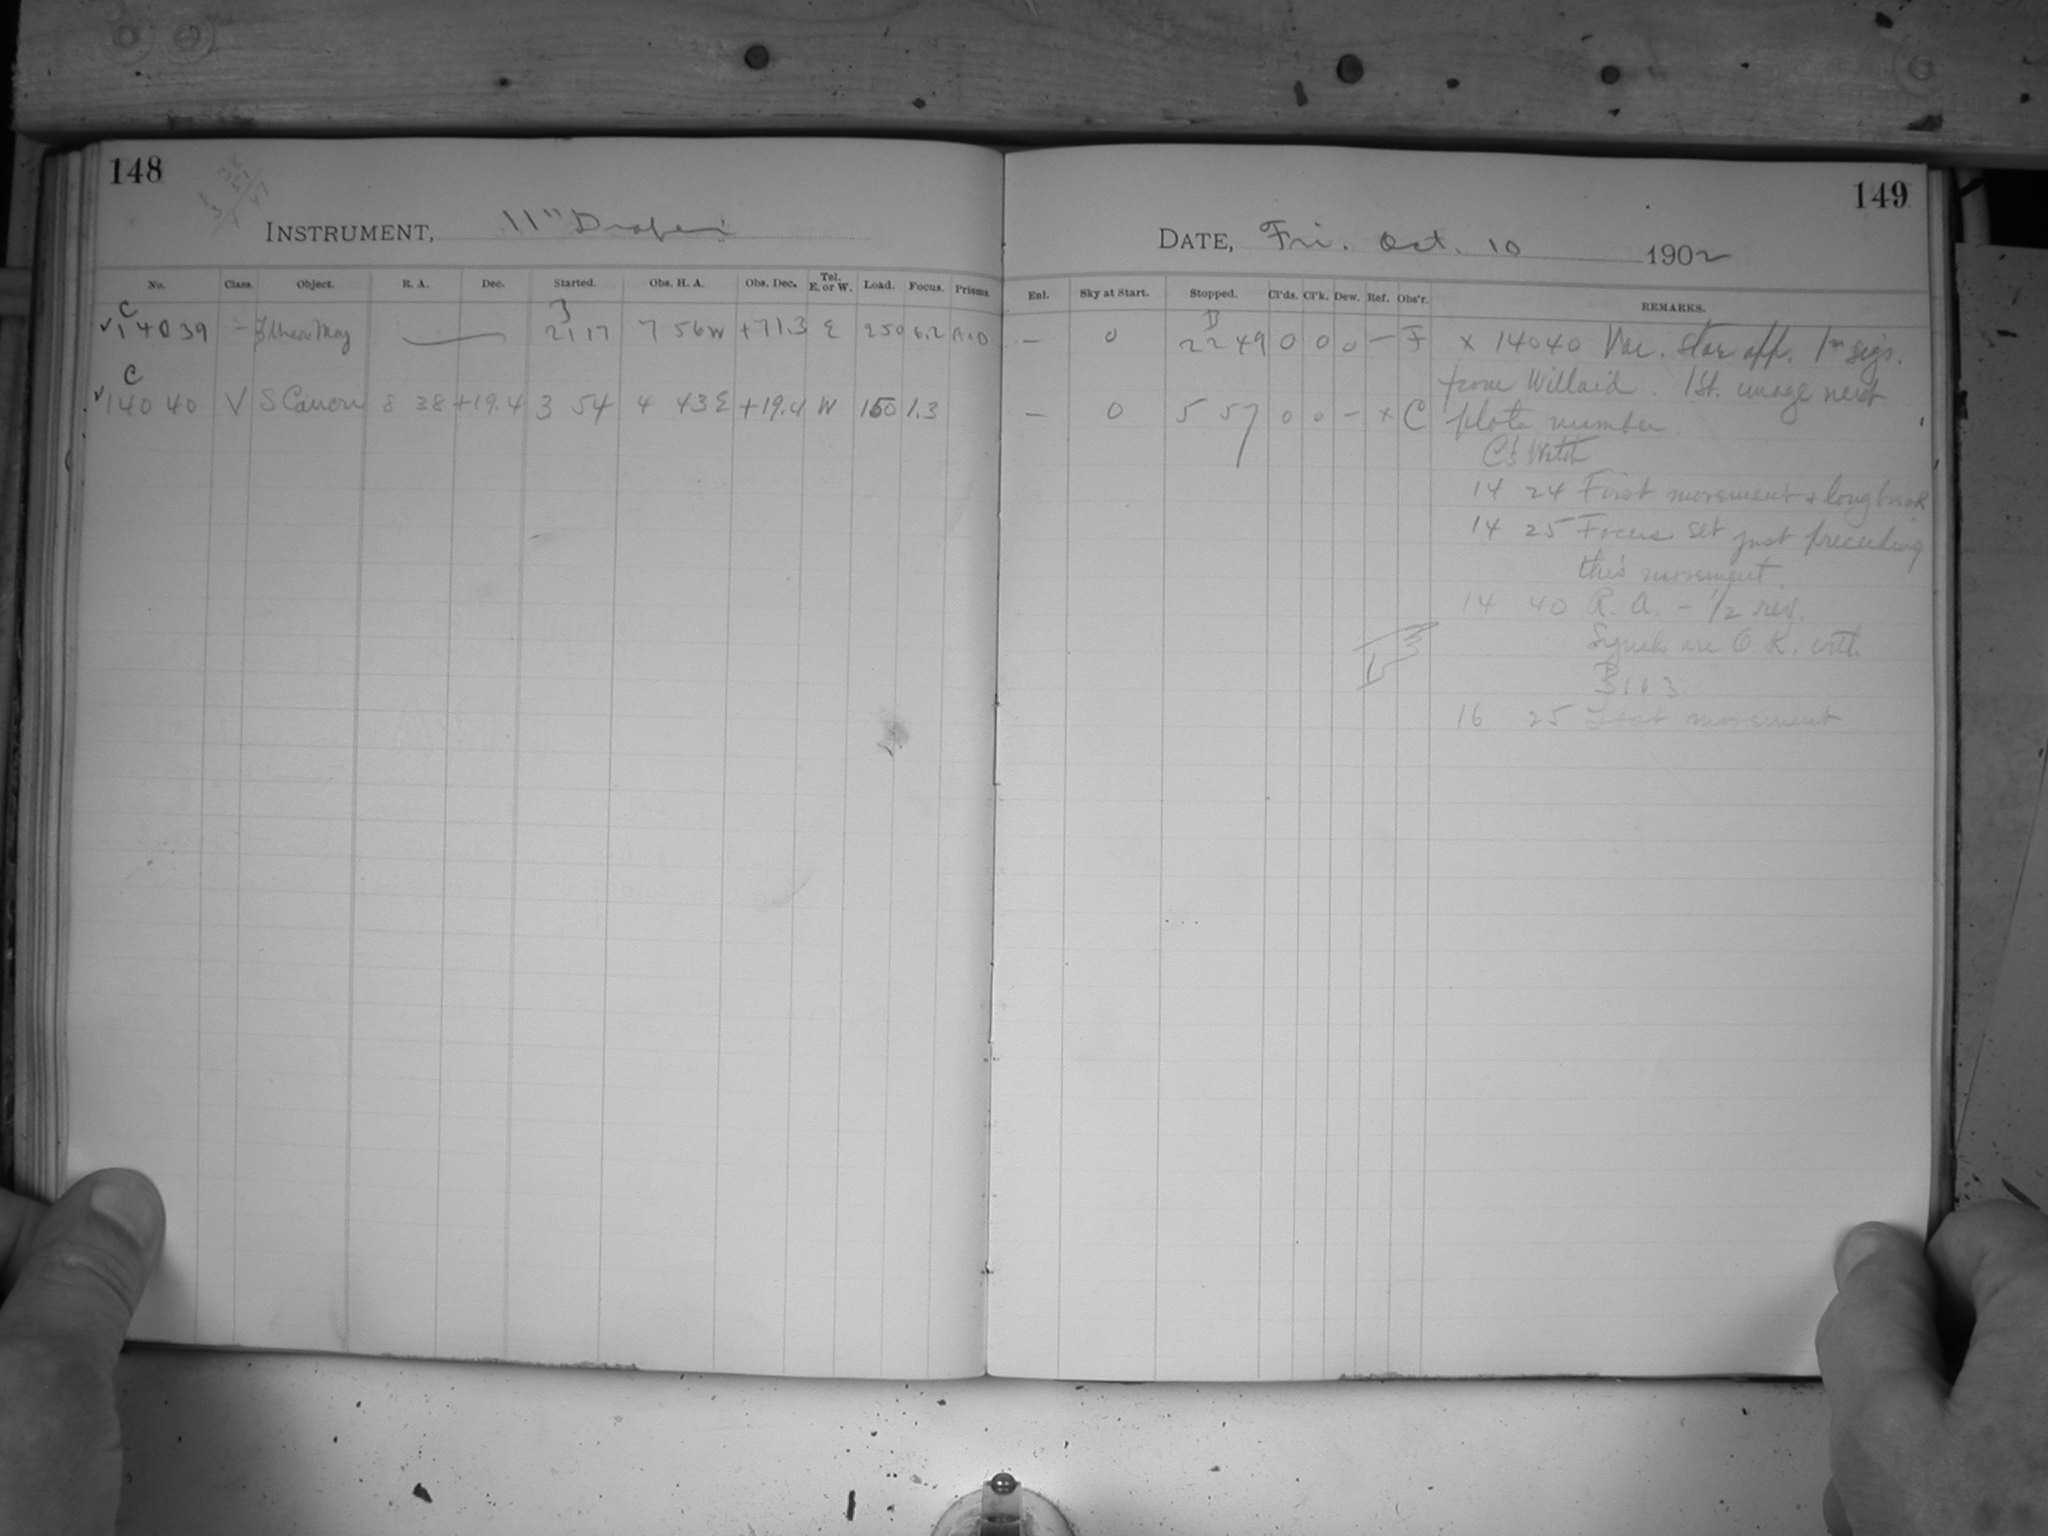 148
INSTRUMENT, 11" Draper
No. Class. Object. R. A. Dec. Started. Obs. H. A. Obs. Dec. Tel. E. or W. Load. Focus. Prisms.
C
✓14039 — 21 17 7 56W +71.3 E 250 6.2
C
✓14040 V S Cancri 8 38 +19.4 3 54 4 43E +19.4 W 150 1.3
149
DATE, Fri. Oct. 10 1902
Enl. Sky at Start. Stopped. Cl'ds. Cl'k. Dew. Ref. Obs'r. REMARKS.
— 0 22 49 0 0 0 — F × 14040 Var. star app. 1m sigs.
from Willard. 1st. image next
— 0 5 57 0 0 – × C plate number.
C's Watch
14 24 First movement + long break
14 25 Focus set just preceding
this movement.
14 40 R. A. – 1/2 rev.
are O. K. with
16 25 Last movement